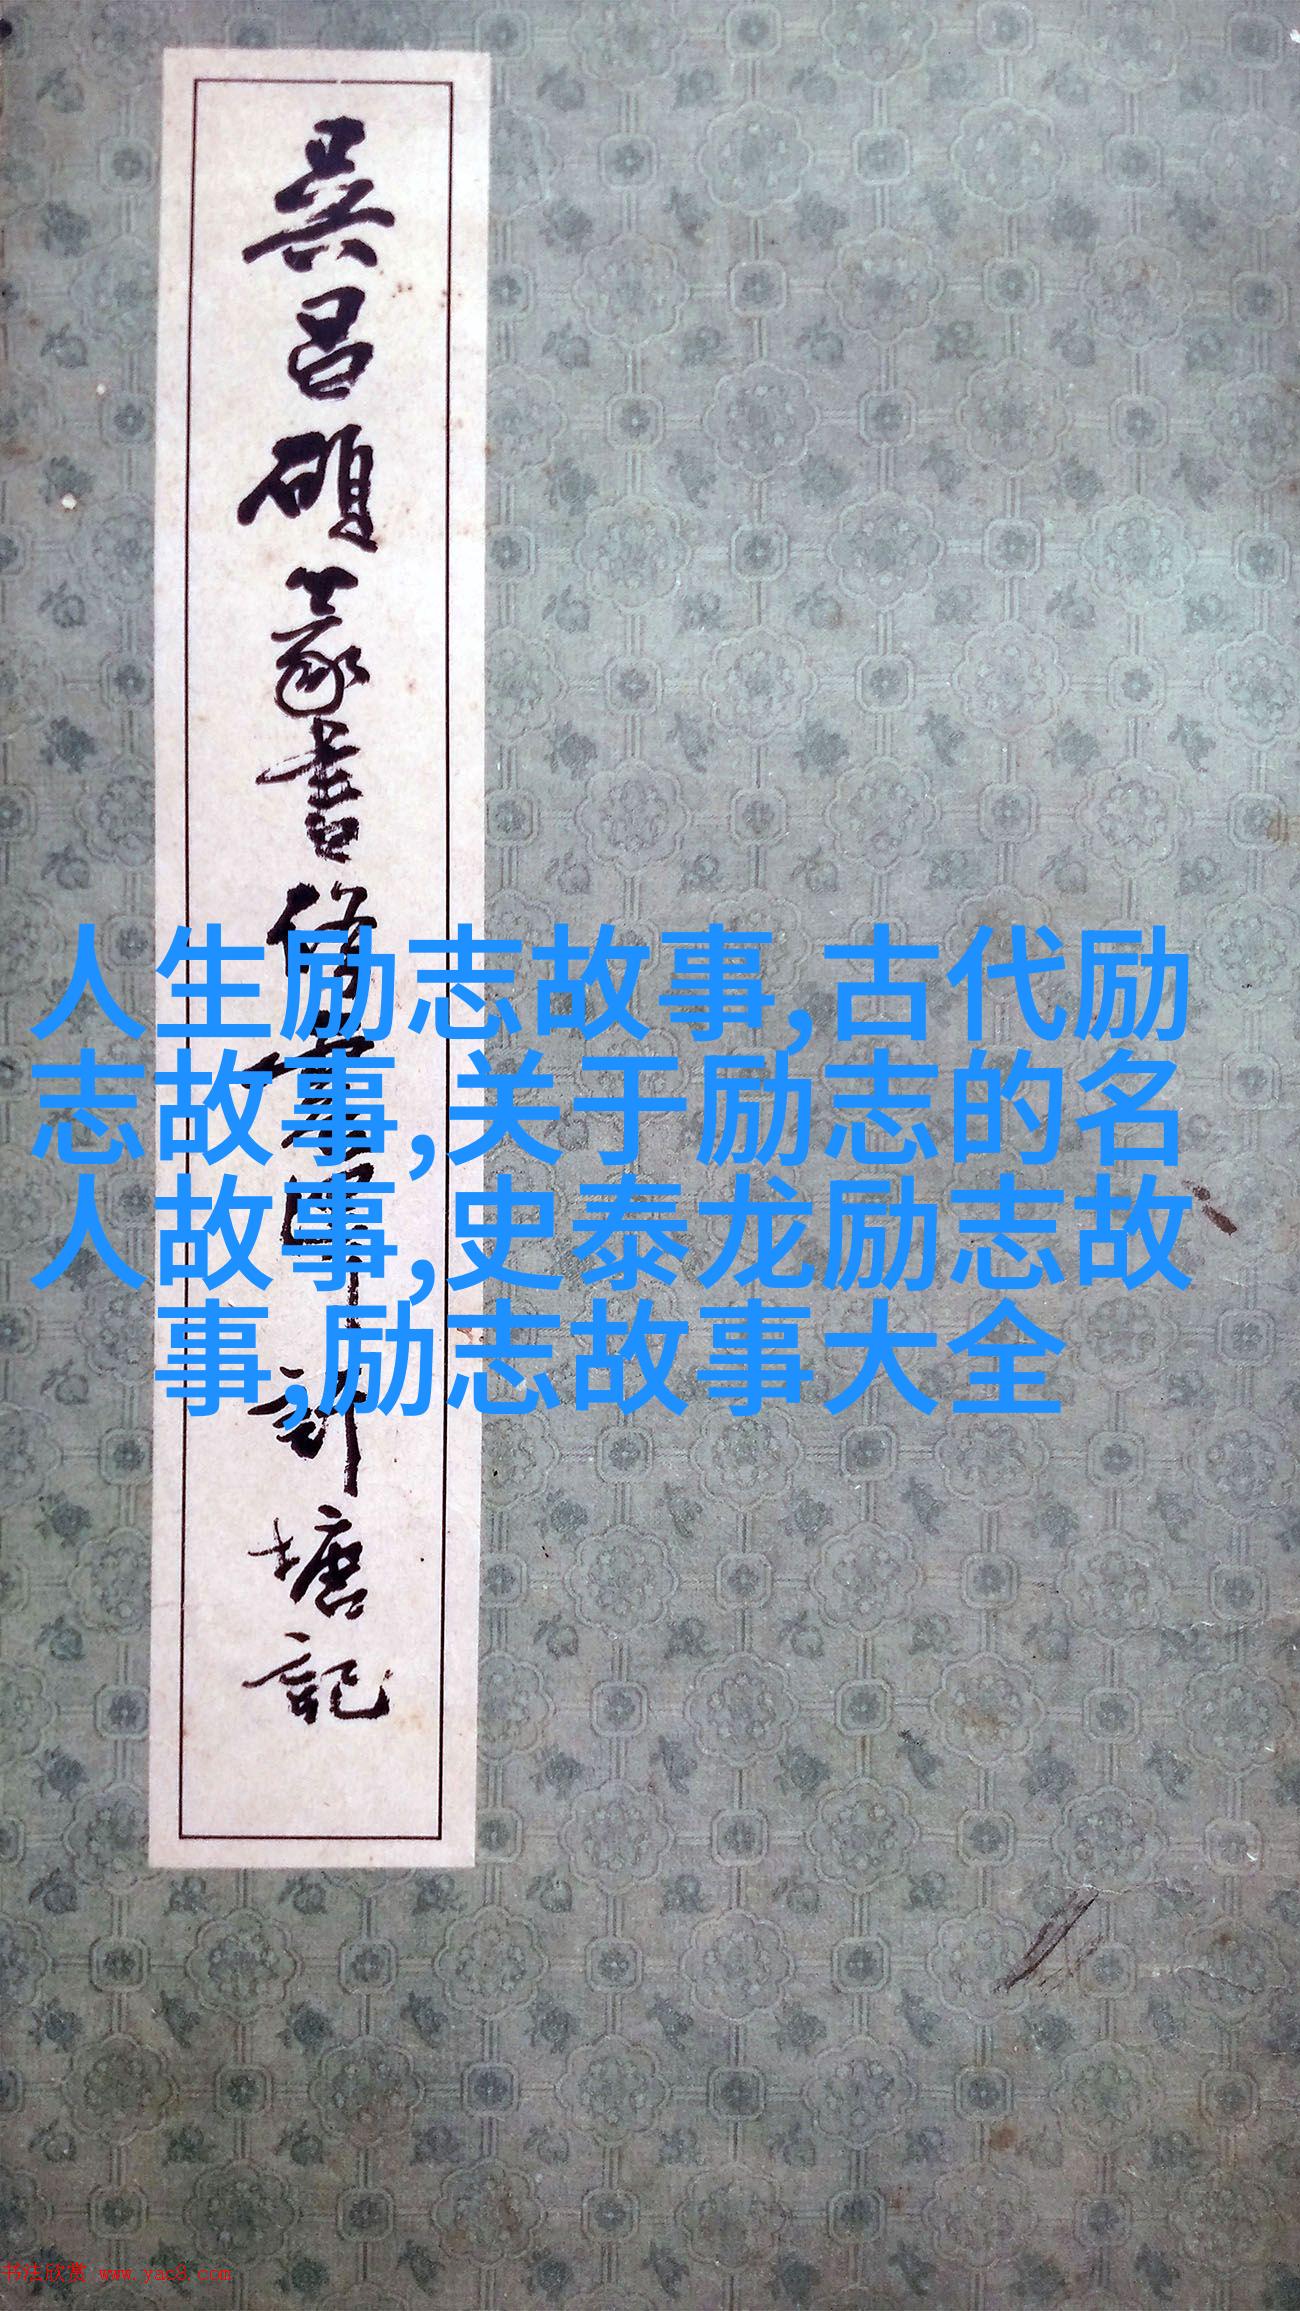 吳昌碩篆書修震澤許塘記
人生励志故事,古代励
志故事,关于励志的名
人故事,史泰龙励志故
事,励志故事大全
书法欣赏 www.yac8.com